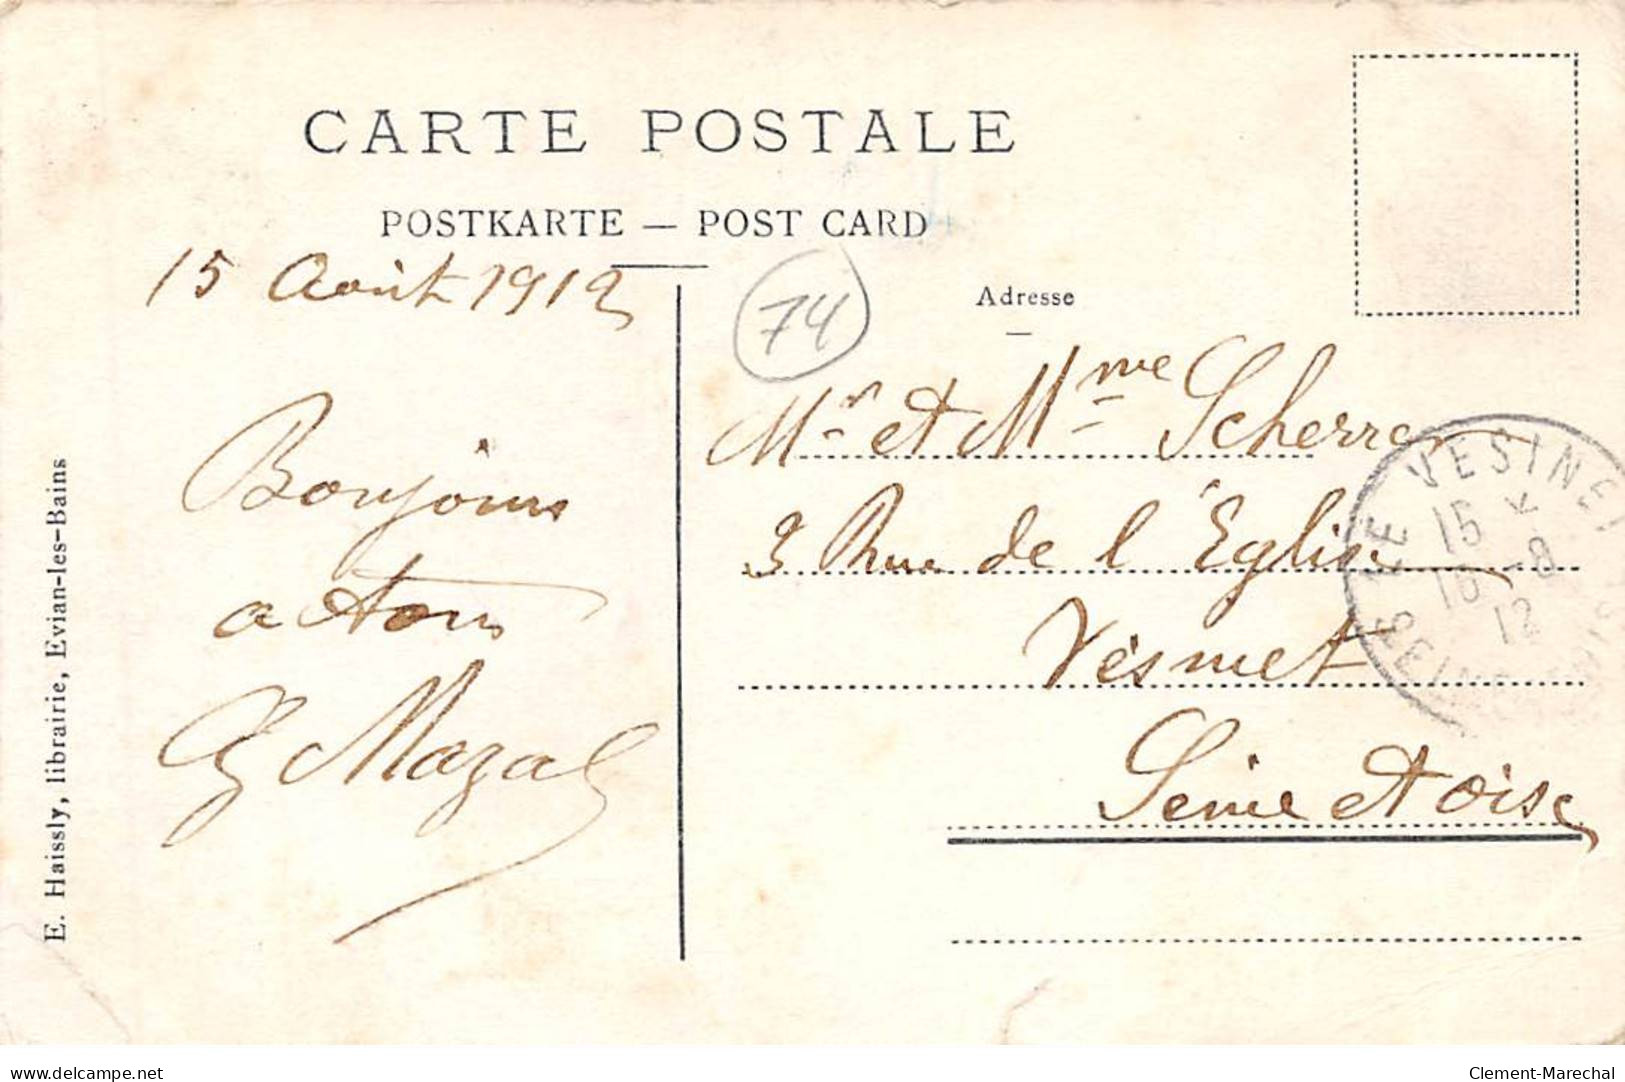 CARTE POSTALE
POSTKARTE — POST CARD
15 Août 1912
74
Adresse
Bonjour
a tous
G Mazal
Mr et Mme Scherrer
3 Rue de l'Eglise
Vésinet
Seine et Oise
LE VESINET
15
16 - 8
12
SEINE
E. Haissly, librairie, Evian-les-Bains
www.delcampe.net
Clement-Marechal